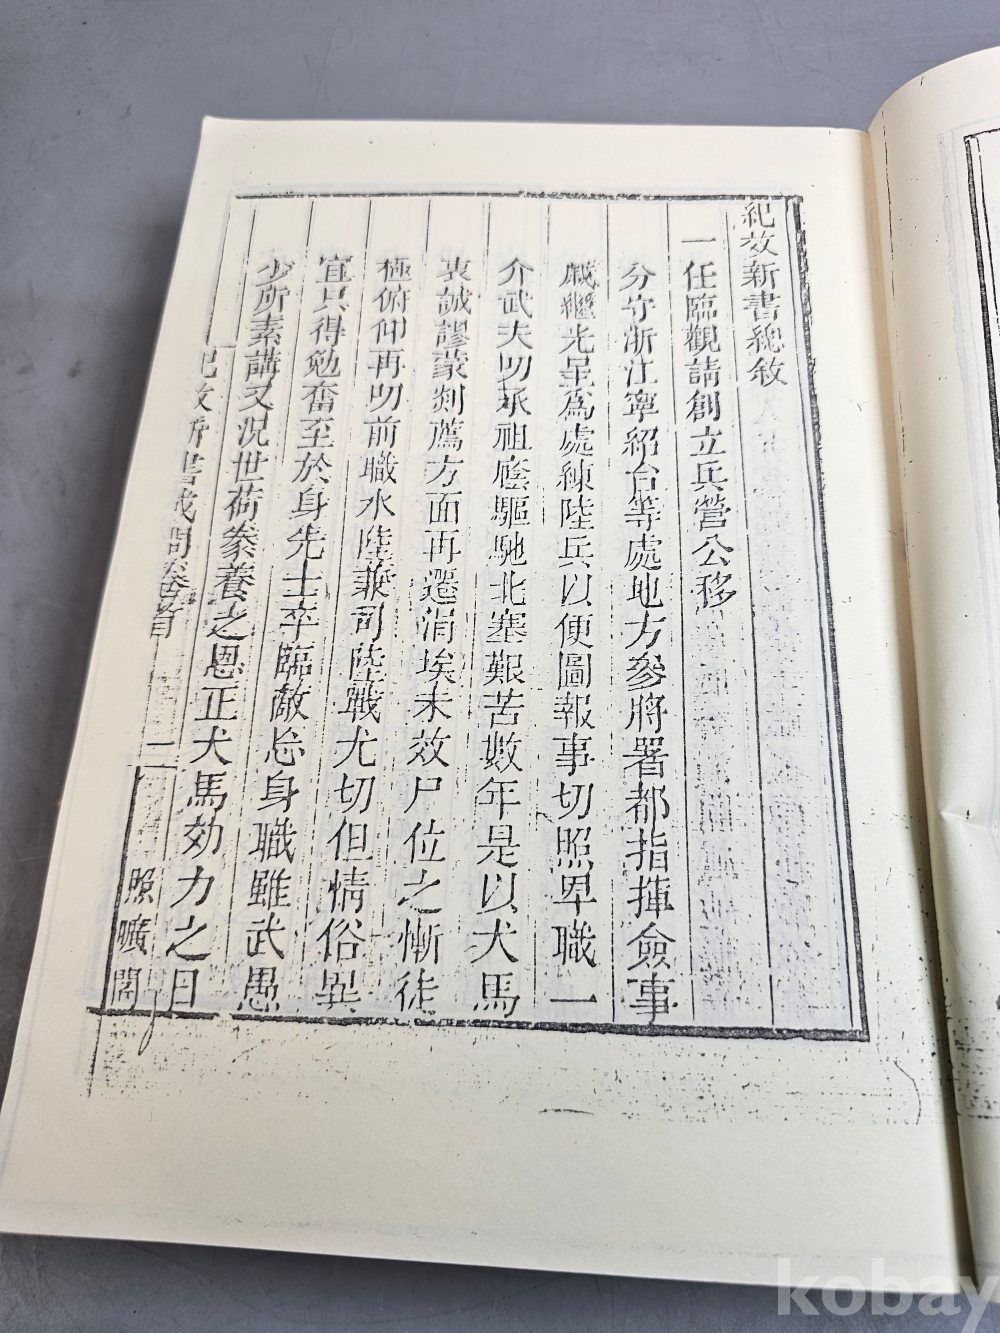 紀效新書總敘
一任臨觀請創立兵營公移
分守浙江寧紹台等處地方參將署都指揮僉事
戚繼光呈爲處練陸兵以便圖報事切照卑職一
介武夫叨承祖廕驅馳北塞艱苦數年是以犬馬
衷誠謬蒙剡薦方面再遷涓埃未效尸位之慚徒
極俯仰再叨前職水陸兼司陸戰尤切但情俗異
宜只得勉奮至於身先士卒臨敵忘身職雖武愚
少所素講又況世荷豢養之恩正犬馬効力之日
紀效新書或問卷首 二 照曠閣
kobay